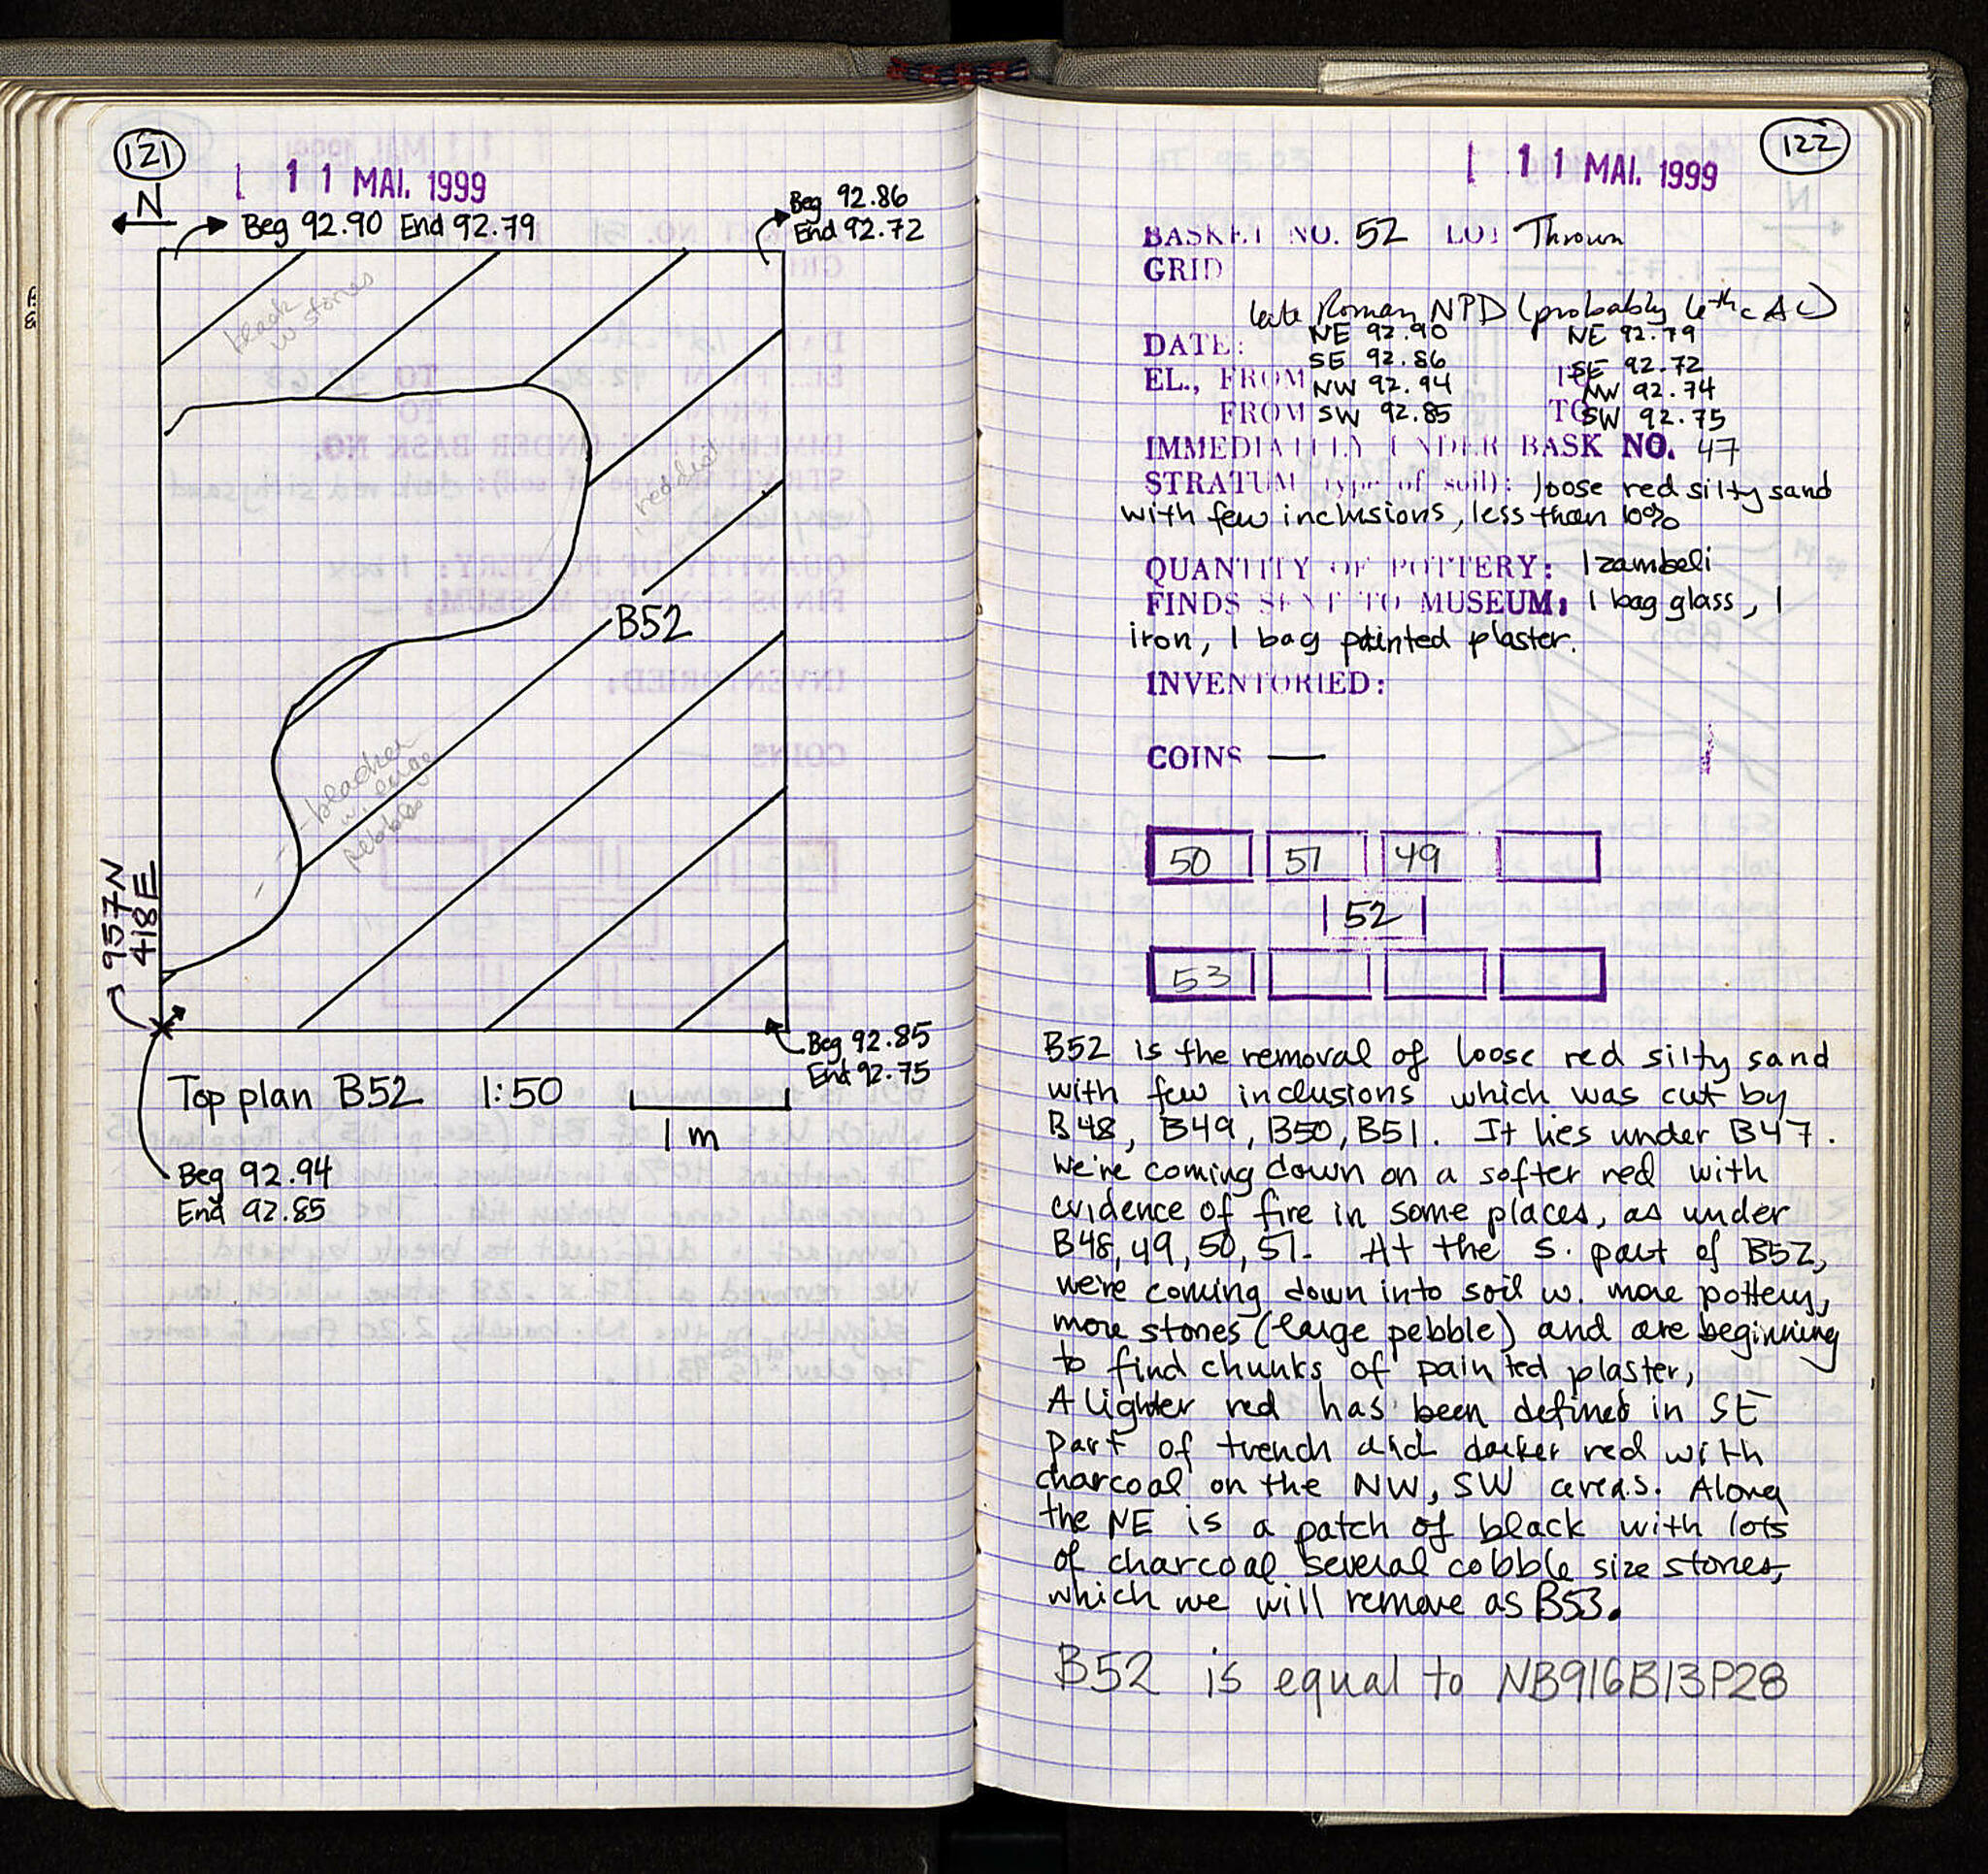 121
11 MAI. 1999
N
Beg 92.90 End 92.79
Beg 92.86
End 92.72
black
w stones
reddish
B52
blacker
w. large
pebbles
957N
418E
Beg 92.85
End 92.75
Top plan B52 1:50
1 m
Beg 92.94
End 92.85
122
11 MAI. 1999
BASKET NO. 52 LOT Thrown
GRID
late Roman NPD (probably 6th c AC)
DATE:
NE 92.90 NE 92.79
SE 92.86 SE 92.72
EL., FROM NW 92.94 TO NW 92.74
FROM SW 92.85 TO SW 92.75
IMMEDIATELY UNDER BASK NO. 47
STRATUM (type of soil): loose red silty sand
with few inclusions, less than 10%
QUANTITY OF POTTERY: 1 zambeli
FINDS SENT TO MUSEUM: 1 bag glass, 1
iron, 1 bag painted plaster.
INVENTORIED:
COINS —
50 51 49
52
53
B52 is the removal of loose red silty sand
with few inclusions which was cut by
B48, B49, B50, B51. It lies under B47.
We're coming down on a softer red with
evidence of fire in some places, as under
B48, 49, 50, 51. At the S. part of B52,
we're coming down into soil w. more pottery,
more stones (large pebble) and are beginning
to find chunks of painted plaster,
A lighter red has been defined in SE
part of trench and darker red with
charcoal on the NW, SW areas. Along
the NE is a patch of black with lots
of charcoal several cobble size stones,
which we will remove as B53.
B52 is equal to NB916B13P28